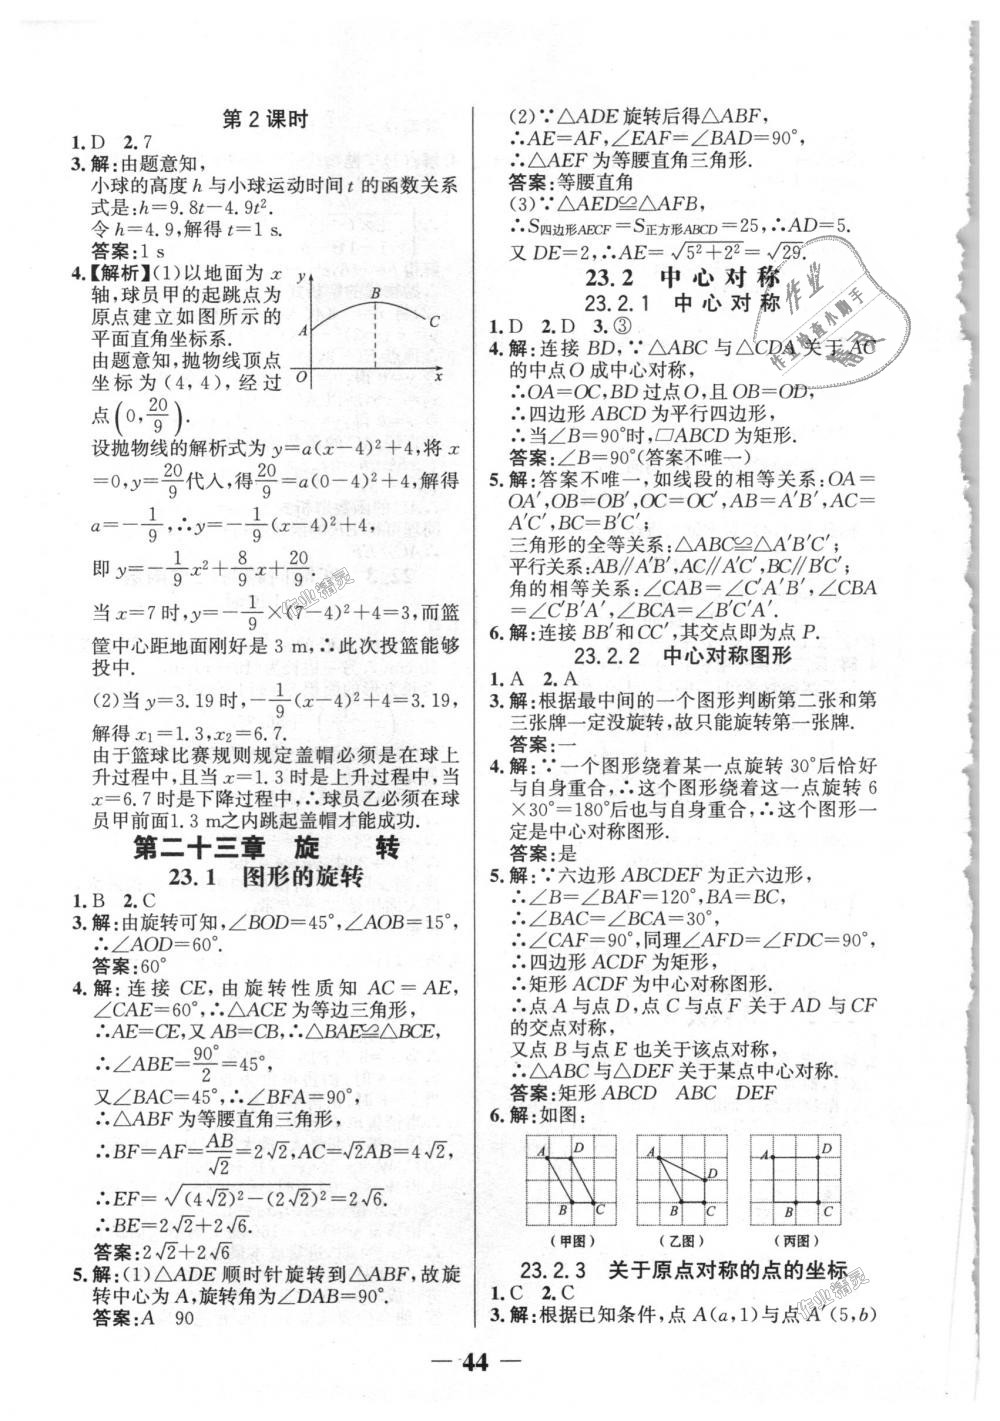 第2课时
1.D 2.7
3.解:由题意知,
小球的高度h与小球运动时间t的函数关系
式是:h=9.8t-4.9t².
令h=4.9,解得t=1 s.
答案:1 s
4.【解析】(1)以地面为x
轴,球员甲的起跳点为
原点建立如图所示的
平面直角坐标系.
由题意知,抛物线顶点
坐标为(4,4),经过
点(0,20/9).
y
B
A
C
O
x
设抛物线的解析式为y=a(x-4)²+4,将x
=0,y=20/9代人,得20/9=a(0-4)²+4,解得
a=-1/9,∴y=-1/9(x-4)²+4,
即y=-1/9x²+8/9x+20/9.
当x=7时,y=-1/9×(7-4)²+4=3,而篮
筐中心距地面刚好是3 m,∴此次投篮能够
投中.
(2)当y=3.19时,-1/9(x-4)²+4=3.19,
解得x₁=1.3,x₂=6.7.
由于篮球比赛规则规定盖帽必须是在球上
升过程中,且当x=1.3时是上升过程中,当
x=6.7时是下降过程中,∴球员乙必须在球
员甲前面1.3 m之内跳起盖帽才能成功.
第二十三章 旋 转
23.1 图形的旋转
1.B 2.C
3.解:由旋转可知,∠BOD=45°,∠AOB=15°,
∴∠AOD=60°.
答案:60°
4.解:连接CE,由旋转性质知AC=AE,
∠CAE=60°,∴△ACE为等边三角形,
∴AE=CE,又AB=CB,∴△BAE≌△BCE,
∴∠ABE=90°/2=45°,
又∠BAC=45°,∴∠BFA=90°,
∴△ABF为等腰直角三角形,
∴BF=AF=AB/√2=2√2,AC=√2AB=4√2,
∴EF=√((4√2)²-(2√2)²)=2√6.
∴BE=2√2+2√6.
答案:2√2+2√6
5.解:(1)△ADE顺时针旋转到△ABF,故旋
转中心为A,旋转角为∠DAB=90°.
答案:A 90
(2)∵△ADE旋转后得△ABF,
∴AE=AF,∠EAF=∠BAD=90°,
∴△AEF为等腰直角三角形.
答案:等腰直角
(3)∵△AED≌△AFB,
∴S四边形AECF=S正方形ABCD=25,∴AD=5.
又DE=2,∴AE=√(5²+2²)=√29.
23.2 中心对称
23.2.1 中心对称
1.D 2.D 3.③
4.解:连接BD,∵△ABC与△CDA关于AC
的中点O成中心对称,
∴OA=OC,BD过点O,且OB=OD,
∴四边形ABCD为平行四边形,
∴当∠B=90°时,□ABCD为矩形.
答案:∠B=90°(答案不唯一)
5.解:答案不唯一,如线段的相等关系:OA=
OA′,OB=OB′,OC=OC′,AB=A′B′,AC=
A′C′,BC=B′C′;
三角形的全等关系:△ABC≌△A′B′C′;
平行关系:AB∥A′B′,AC∥A′C′,BC∥B′C′;
角的相等关系:∠CAB=∠C′A′B′,∠CBA
=∠C′B′A′,∠BCA=∠B′C′A′.
6.解:连接BB′和CC′,其交点即为点P.
23.2.2 中心对称图形
1.A 2.A
3.解:根据最中间的一个图形判断第二张和第
三张牌一定没旋转,故只能旋转第一张牌.
答案:一
4.解:∵一个图形绕着某一点旋转30°后恰好
与自身重合,∴这个图形绕着这一点旋转6
×30°=180°后也与自身重合,∴这个图形一
定是中心对称图形.
答案:是
5.解:∵六边形ABCDEF为正六边形,
∴∠B=∠BAF=120°,BA=BC,
∴∠BAC=∠BCA=30°,
∴∠CAF=90°,同理∠AFD=∠FDC=90°,
∴四边形ACDF为矩形,
∴矩形ACDF为中心对称图形.
∴点A与点D,点C与点F关于AD与CF
的交点对称,
又点B与点E也关于该点对称,
∴△ABC与△DEF关于某点中心对称.
答案:矩形ABCD ABC DEF
6.解:如图:
A D B C
(甲图)
A D B C
(乙图)
A D B C
(丙图)
23.2.3 关于原点对称的点的坐标
1.C 2.C
3.解:根据已知条件,点A(a,1)与点A′(5,b)
— 44 —
作业
作业检查小助手
精灵
作业精灵
作业精灵